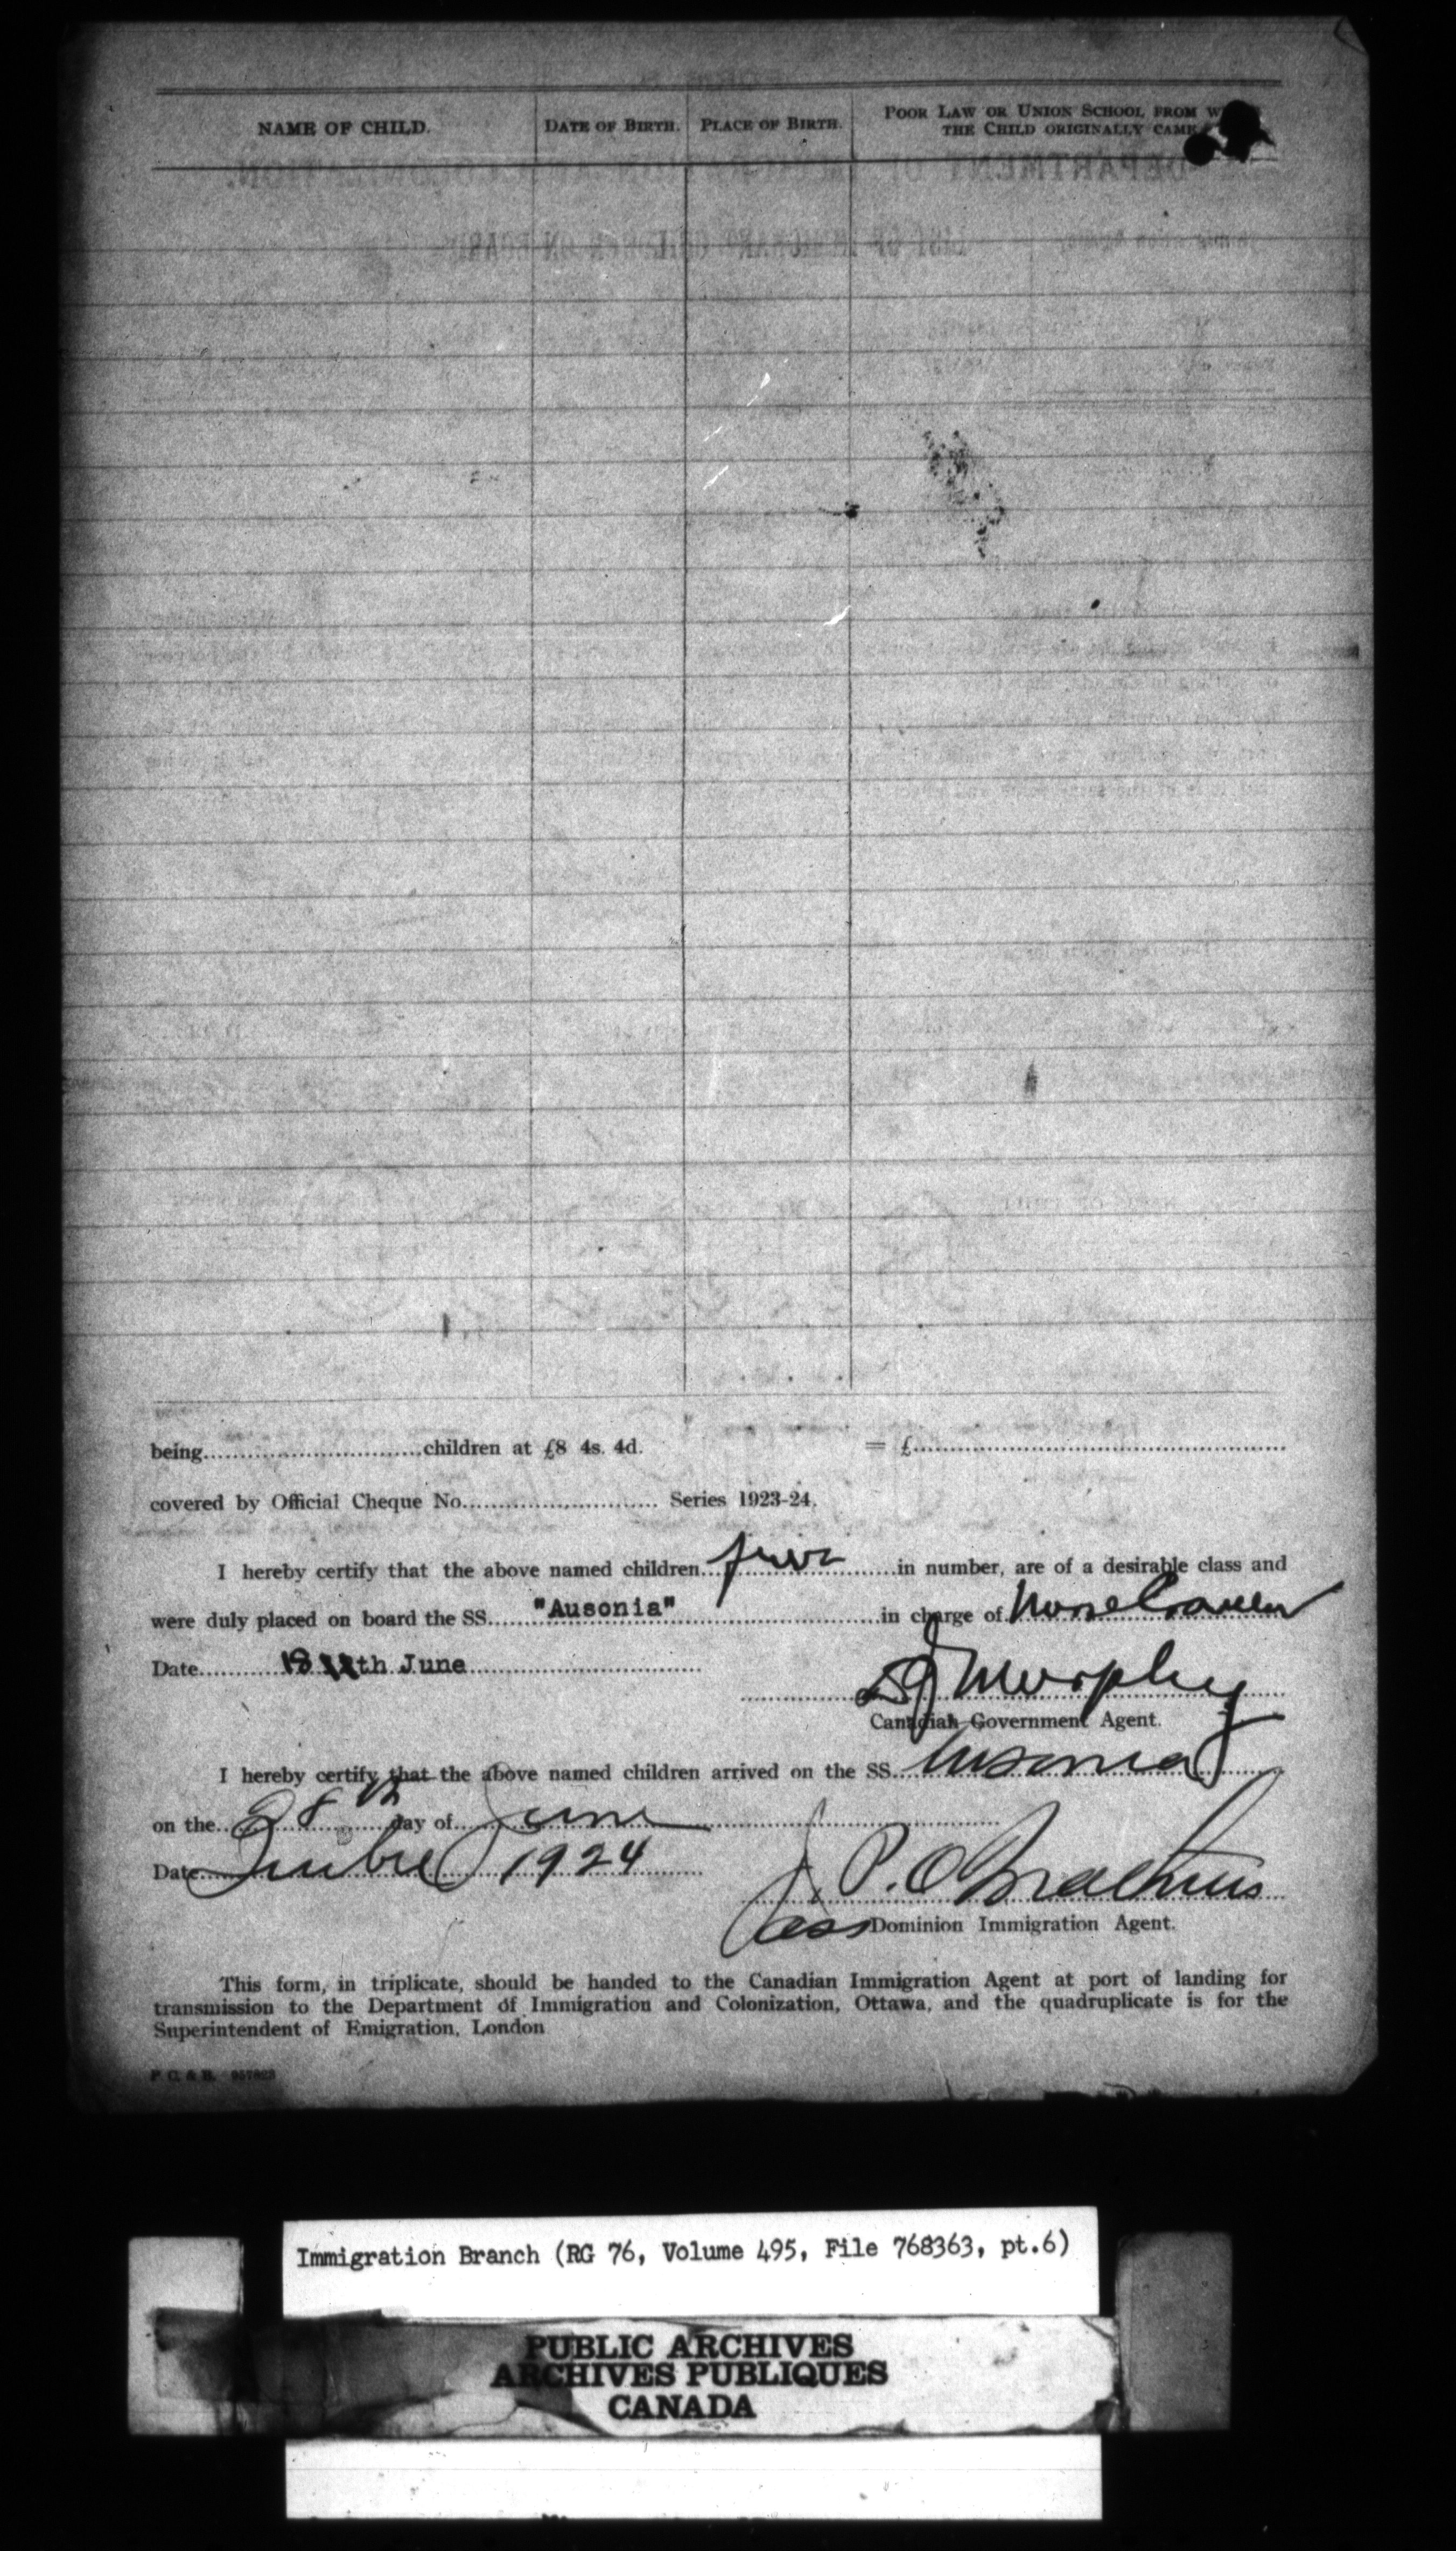 NAME OF CHILD. DATE OF BIRTH. PLACE OF BIRTH. POOR LAW OR UNION SCHOOL FROM
THE CHILD ORIGINALLY CAME
being..............................children at £8 4s. 4d. = £..............................
covered by Official Cheque No.............................. Series 1923-24.
I hereby certify that the above named children..............in number, are of a desirable class and
were duly placed on board the SS....."Ausonia"..............in charge of
Date..........18 th June..............
Murphy
Canadian Government Agent.
I hereby certify that the above named children arrived on the SS...Ausonia
on the..28th..day of..June
Date..Quebec 1924
P.O.
Dominion Immigration Agent.
This form, in triplicate, should be handed to the Canadian Immigration Agent at port of landing for
transmission to the Department of Immigration and Colonization, Ottawa, and the quadruplicate is for the
Superintendent of Emigration, London
Immigration Branch (RG 76, Volume 495, File 768363, pt.6)
PUBLIC ARCHIVES
ARCHIVES PUBLIQUES
CANADA